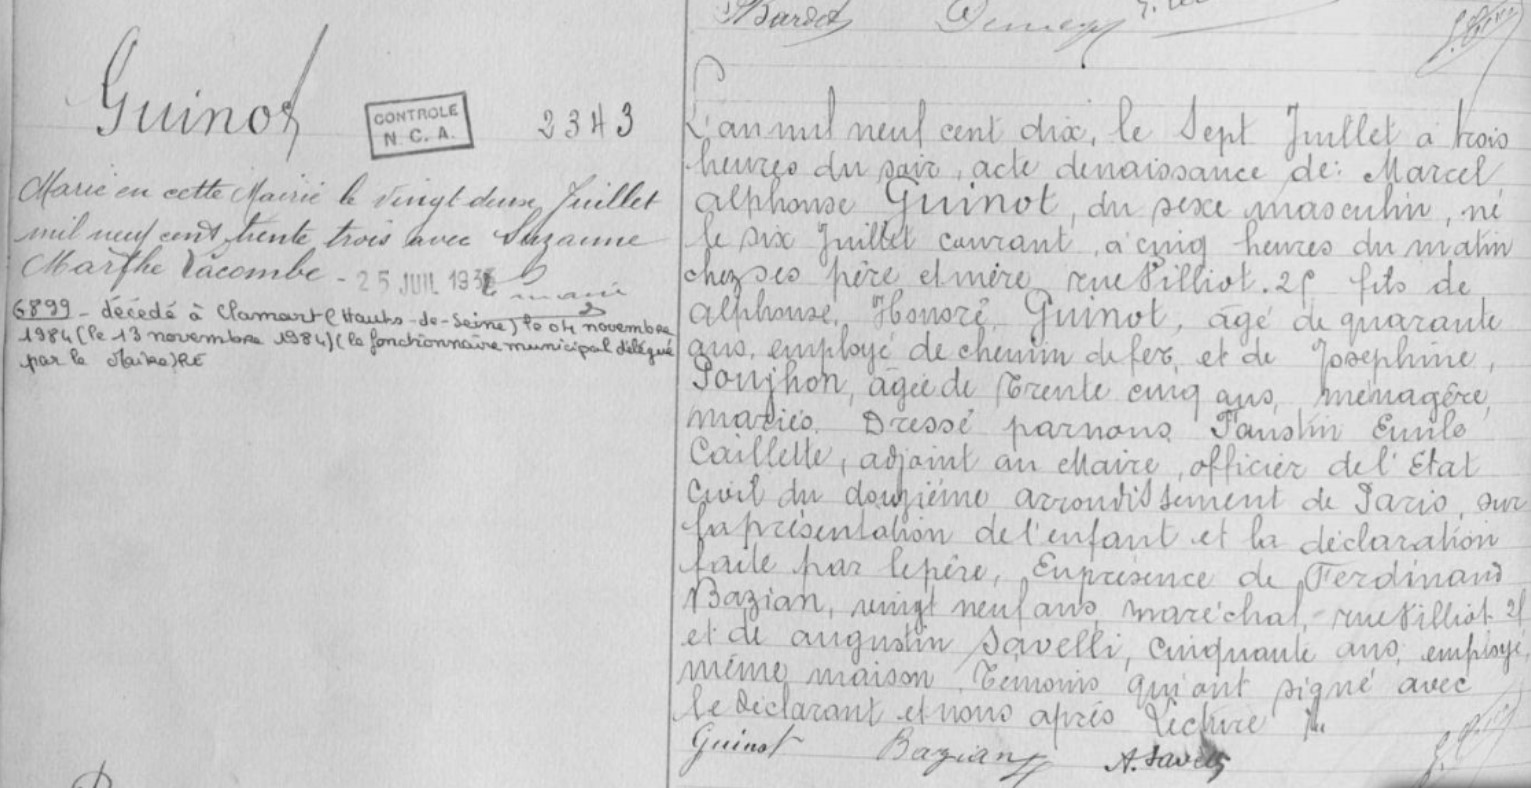 Bardot
Guinot
CONTROLE
N.C.A.
2343
Marié en cette Mairie le vingt deux Juillet
mil neuf cent trente trois avec Suzanne
Marthe Lacombe - 25 JUIL 193
6899 - décédé à Clamart (Hauts-de-Seine) le 04 novembre
1984 (le 13 novembre 1984) (le fonctionnaire municipal délégué
par le Maire) RE
L'an mil neuf cent dix, le Sept Juillet à trois
heures du soir, acte de naissance de: Marcel,
Alphonse Guinot, du sexe masculin, né
le six Juillet courant, à cinq heures du matin
chez ses père et mère, rue Villiot. fils de
Alphonse, Honoré, Guinot, âgé de quarante
ans, employé de chemin de fer, et de Joséphine,
Poujhon, âgée de Trente cinq ans, ménagère,
mariés. Dressé par nous, Faustin Emile
Caillette, adjoint au Maire, officier de l'Etat
Civil du douzième arrondissement de Paris, sur
la présentation de l'enfant et la déclaration
faite par le père, En présence de Ferdinand
Bazian, vingt neuf ans, maréchal, rue Villiot
et de augustin Savelli, cinquante ans, employé,
même maison, Témoins qui ont signé avec
le déclarant et nous après Lecture
Guinot Bazian A. Savelli